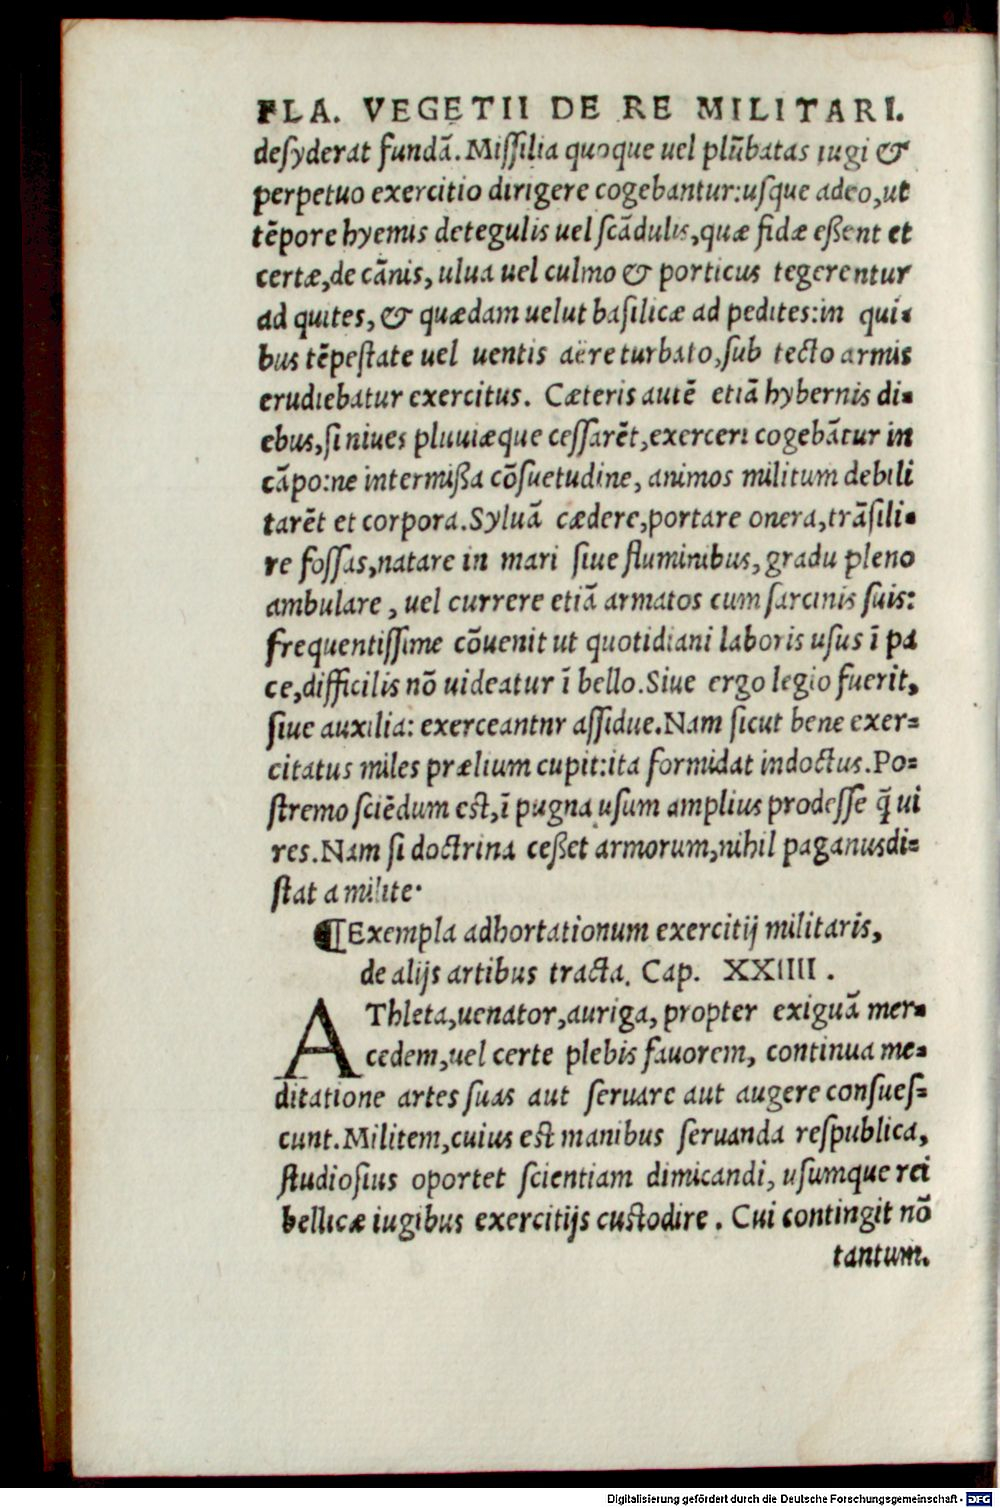 FLA. VEGETII DE RE MILITARI.
deſyderat fundā. Miſſilia quoque uel plūbatas iugi &
perpetuo exercitio dirigere cogebantur:uſque adeo,ut
tēpore hyemis detegulis uel ſcādulis,quæ fidæ eßent et
certæ,de cānis, ulua uel culmo & porticus tegerentur
ad quites, & quædam uelut baſilicæ ad pedites:in qui-
bus tēpeſtate uel uentis aëre turbato,ſub tecto armis
erudiebatur exercitus. Cæteris autē etiā hybernis di-
ebus,ſi niues pluuiæque ceſſarēt,exerceri cogebātur in
cāpo:ne intermißa cōſuetudine, animos militum debili
tarēt et corpora.Syluā cædere,portare onera,trāſili-
re foſſas,natare in mari ſiue fluminibus, gradu pleno
ambulare , uel currere etiā armatos cum ſarcinis ſuis:
frequentiſſime cōuenit ut quotidiani laboris uſus ī pa
ce,difficilis nō uideatur ī bello.Siue ergo legio fuerit,
ſiue auxilia: exerceantnr aſſidue.Nam ſicut bene exer=
citatus miles prælium cupit:ita formidat indoctus.Po=
ſtremo ſciēdum eſt,ī pugna uſum amplius prodeſſe q̄ ui
res.Nam ſi doctrina ceßet armorum,nihil paganusdi=
ſtat a milite.
¶Exempla adhortationum exercitij militaris,
de alijs artibus tracta. Cap. XXIIII .
AThleta,uenator,auriga, propter exiguā mer-
cedem,uel certe plebis fauorem, continua me-
ditatione artes ſuas aut ſeruare aut augere conſueſ=
cunt.Militem,cuius eſt manibus ſeruanda reſpublica,
ſtudioſius oportet ſcientiam dimicandi, uſumque rei
bellicæ iugibus exercitijs cuſtodire . Cui contingit nō
tantum.
Digitalisierung gefördert durch die Deutsche Forschungsgemeinschaft - DFG